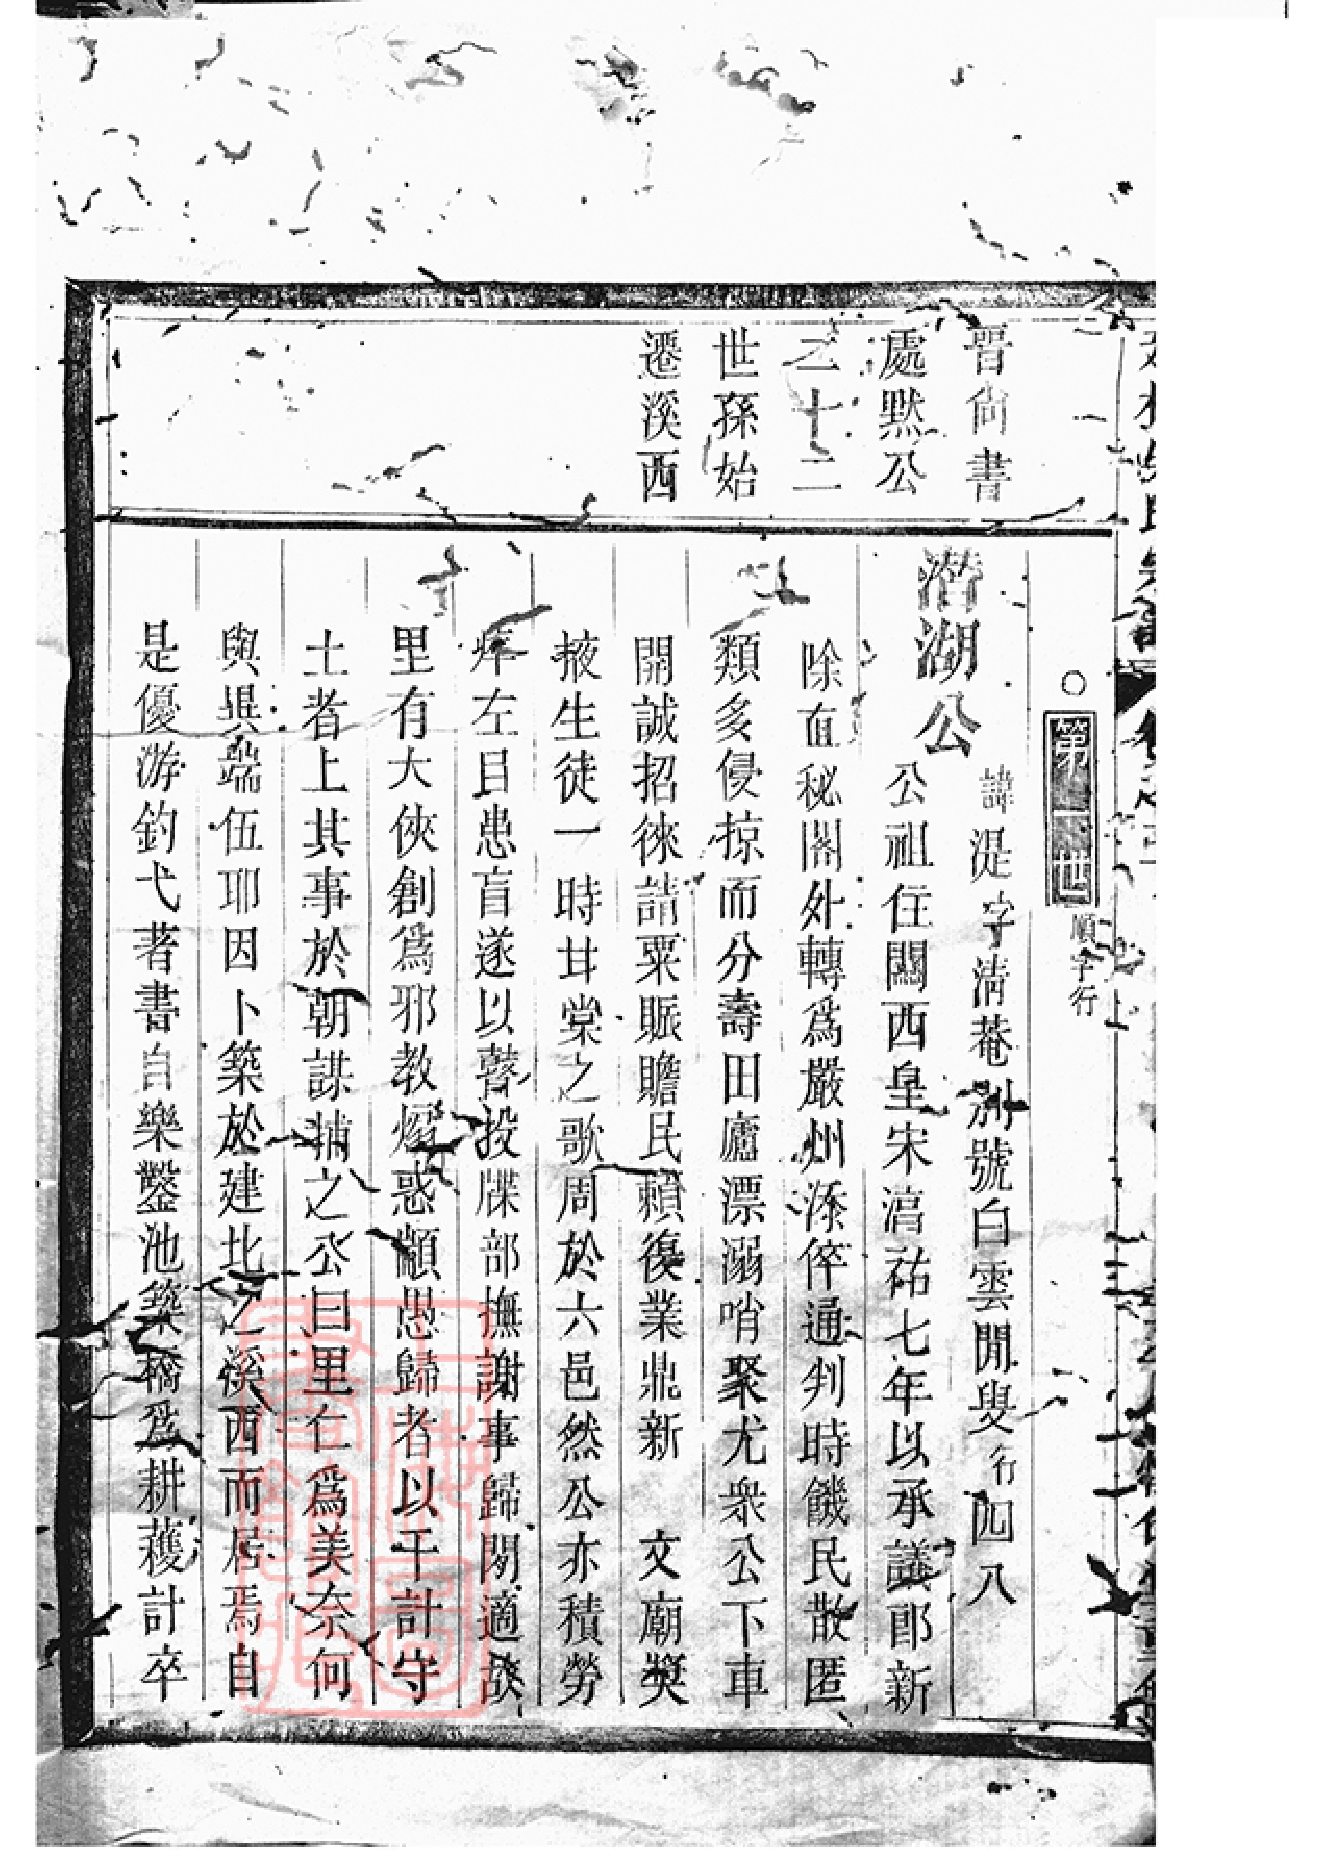 晋尙書
處黙公
之十二
世孫始
遷溪西
○第一世順字行
潛湖公
諱湜字淸菴別號白雲閒叟行四八
公祖任闗西皇宋淳祐七年以承議郎新
除直秘閣外轉爲嚴州添倅通判時饑民散匿
類多侵掠而分壽田廬漂溺哨聚尤衆公下車
開誠招徠請粟賑贍民頼復業鼎新　文廟奬
掖生徒一時甘棠之歌周於六邑然公亦積勞
左目患盲遂以瞽投牒部撫謝事歸閑適故
里有大俠創爲邪教煽惑顓愚歸者以千計守
土者上其事於朝謀捕之公曰里仁爲美奈何
與異端伍耶因卜築於建北之溪西而居焉自
是優游釣弋著書自樂鑿池築橋爲耕穫計卒